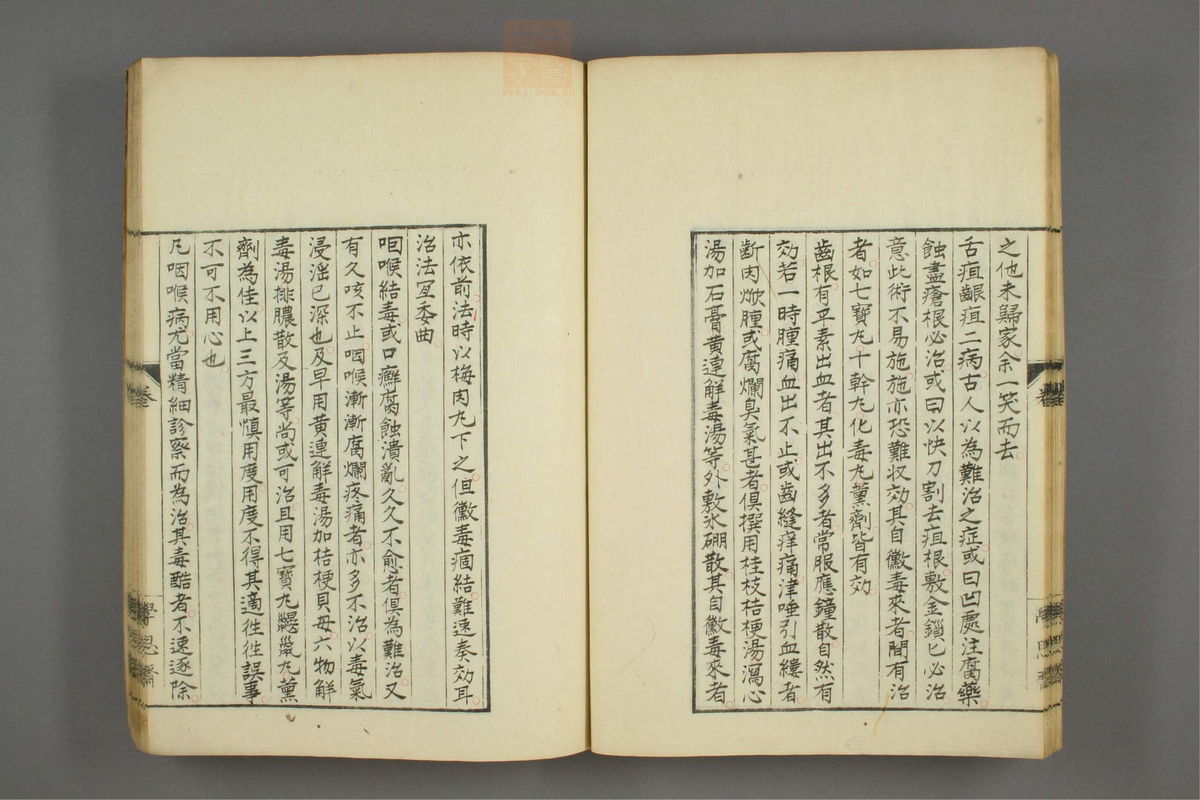 之他未歸家余一笑而去
舌疽齦疽二病古人以為難治之症或曰凹處注腐藥
蝕盡瘡根必治或曰以快刀割去疽根敷金鎖匕必治
意此術不易施施亦恐難収効其自黴毒來者間有治
者如七寶丸十幹丸化毒丸薰劑皆有効
齒根有平素出血者其出不多者常服應鐘散自然有
効若一時腫痛血出不止或齒縫痒痛津唾引血縷者
斷肉焮腫或腐爛臭氣甚者俱撰用桂枝桔梗湯瀉心
湯加石膏黄連解毒湯等外敷氷硼散其自黴毒來者
亦依前法時以梅肉丸下之但黴毒痼結難速奏効耳
治法宜委曲
咽喉結毒或口癬腐蝕潰亂久久不愈者俱為難治又
有久咳不止咽喉漸漸腐爛疼痛者亦多不治以毒氣
浸淫已深也及早用黄連解毒湯加桔梗貝母六物解
毒湯排膿散及湯等尚或可治且用七寶丸鼴鼠丸薰
劑為佳以上三方最慎用度用度不得其適徃徃誤事
不可不用心也
凡咽喉病尤當精細診察而為治其毒酷者不速逐除
卷
學思齋
zysj.com.cn